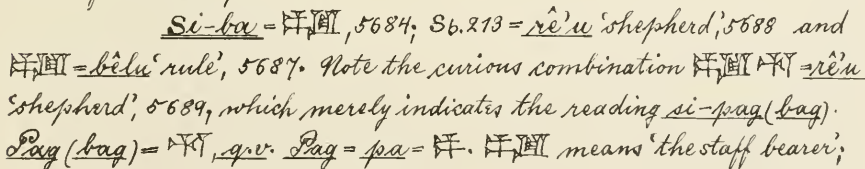 Si-ba = 𒉺𒇻, 5684; Sb. 213 = rê’u ‘shepherd’, 5688 and
𒉺𒇻 = bêlu ‘rule’, 5687. Note the curious combination 𒉺𒇻 𒄷 = rê’u
‘shepherd’, 5689, which merely indicates the reading si-pag (bag).
Pag (bag) = 𒄷, q.v. Pag = pa = 𒉺. 𒉺𒇻 means ‘the staff bearer’;